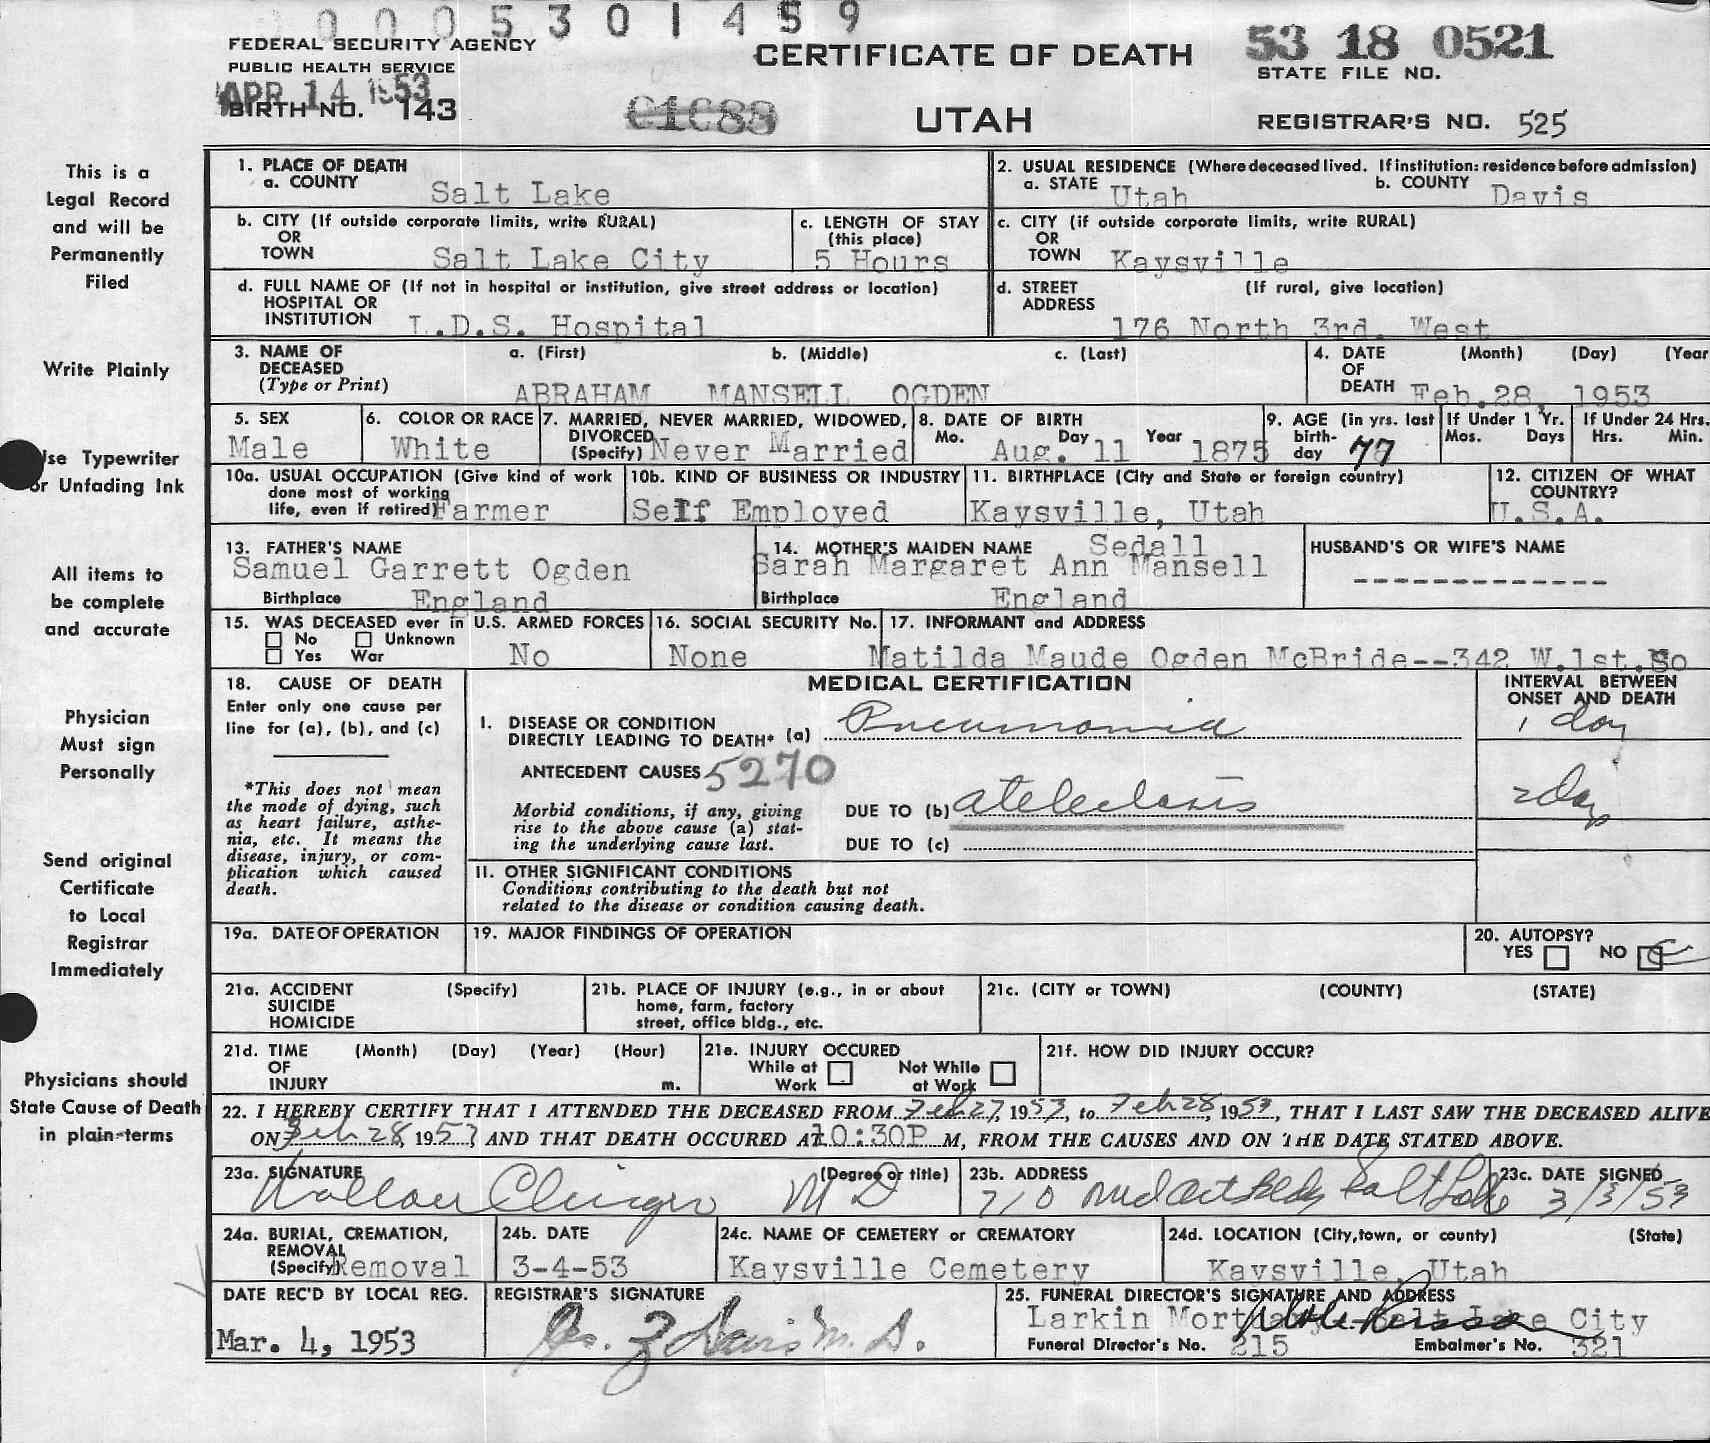 0005301459
FEDERAL SECURITY AGENCY
PUBLIC HEALTH SERVICE
APR 14 1953
BIRTH NO. 143
CERTIFICATE OF DEATH
UTAH
53 18 0521
STATE FILE NO.
REGISTRAR'S NO. 525
This is a
Legal Record
and will be
Permanently
Filed
Write Plainly
Use Typewriter
or Unfading Ink
All items to
be complete
and accurate
Physician
Must sign
Personally
Send original
Certificate
to Local
Registrar
Immediately
Physicians should
State Cause of Death
in plain-terms
1. PLACE OF DEATH
a. COUNTY Salt Lake
2. USUAL RESIDENCE (Where deceased lived. If institution: residence before admission)
a. STATE Utah b. COUNTY Davis
b. CITY (If outside corporate limits, write RURAL)
OR
TOWN Salt Lake City
c. LENGTH OF STAY
(this place)
5 Hours
c. CITY (if outside corporate limits, write RURAL)
OR
TOWN Kaysville
d. FULL NAME OF (If not in hospital or institution, give street address or location)
HOSPITAL OR
INSTITUTION L.D.S. Hospital
d. STREET (If rural, give location)
ADDRESS
176 North 3rd. West
3. NAME OF a. (First) b. (Middle) c. (Last)
DECEASED
(Type or Print) ABRAHAM MANSELL OGDEN
4. DATE (Month) (Day) (Year
OF
DEATH Feb.28, 1953
5. SEX
Male
6. COLOR OR RACE
White
7. MARRIED, NEVER MARRIED, WIDOWED,
DIVORCED
(Specify) Never Married
8. DATE OF BIRTH
Mo. Day Year
Aug. 11 1875
9. AGE (in yrs. last
birth-
day 77
If Under 1 Yr.
Mos. Days
If Under 24 Hrs.
Hrs. Min.
10a. USUAL OCCUPATION (Give kind of work
done most of working
life, even if retired) Farmer
10b. KIND OF BUSINESS OR INDUSTRY
Self Employed
11. BIRTHPLACE (City and State or foreign country)
Kaysville, Utah
12. CITIZEN OF WHAT
COUNTRY?
U.S.A.
13. FATHER'S NAME
Samuel Garrett Ogden
Birthplace England
14. MOTHER'S MAIDEN NAME Sedall
Sarah Margaret Ann Mansell
Birthplace England
HUSBAND'S OR WIFE'S NAME
-------------
15. WAS DECEASED ever in U.S. ARMED FORCES
No Unknown
Yes War No
16. SOCIAL SECURITY No.
None
17. INFORMANT and ADDRESS
Matilda Maude Ogden McBride--342 W.1st.So
18. CAUSE OF DEATH
Enter only one cause per
line for (a), (b), and (c)
*This does not mean
the mode of dying, such
as heart failure, asthe-
nia, etc. It means the
disease, injury, or com-
plication which caused
death.
MEDICAL CERTIFICATION
INTERVAL BETWEEN
ONSET AND DEATH
I. DISEASE OR CONDITION
DIRECTLY LEADING TO DEATH* (a) Pneumonia
1 day
ANTECEDENT CAUSES 5270
Morbid conditions, if any, giving
rise to the above cause (a) stat-
ing the underlying cause last.
DUE TO (b) atelectasis
2 days
DUE TO (c)
II. OTHER SIGNIFICANT CONDITIONS
Conditions contributing to the death but not
related to the disease or condition causing death.
19a. DATE OF OPERATION
19. MAJOR FINDINGS OF OPERATION
20. AUTOPSY?
YES NO
21a. ACCIDENT (Specify)
SUICIDE
HOMICIDE
21b. PLACE OF INJURY (e.g., in or about
home, farm, factory
street, office bldg., etc.
21c. (CITY or TOWN) (COUNTY) (STATE)
21d. TIME (Month) (Day) (Year) (Hour)
OF
INJURY m.
21e. INJURY OCCURED
While at Not While
Work at Work
21f. HOW DID INJURY OCCUR?
22. I HEREBY CERTIFY THAT I ATTENDED THE DECEASED FROM Feb 27, 1953, to Feb 28, 1953, THAT I LAST SAW THE DECEASED ALIVE
ON Feb 28, 1953 AND THAT DEATH OCCURED AT 10:30P M, FROM THE CAUSES AND ON THE DATE STATED ABOVE.
23a. SIGNATURE (Degree or title)
M D
23b. ADDRESS
710 Med Art Bldg Salt Lake
23c. DATE SIGNED
3/3/53
24a. BURIAL, CREMATION,
REMOVAL
(Specify) Removal
24b. DATE
3-4-53
24c. NAME OF CEMETERY or CREMATORY
Kaysville Cemetery
24d. LOCATION (City, town, or county) (State)
Kaysville, Utah
DATE REC'D BY LOCAL REG.
Mar. 4, 1953
REGISTRAR'S SIGNATURE
M. D.
25. FUNERAL DIRECTOR'S SIGNATURE AND ADDRESS
Larkin Mortuary-Salt Lake City
Funeral Director's No. 215 Embalmer's No. 321